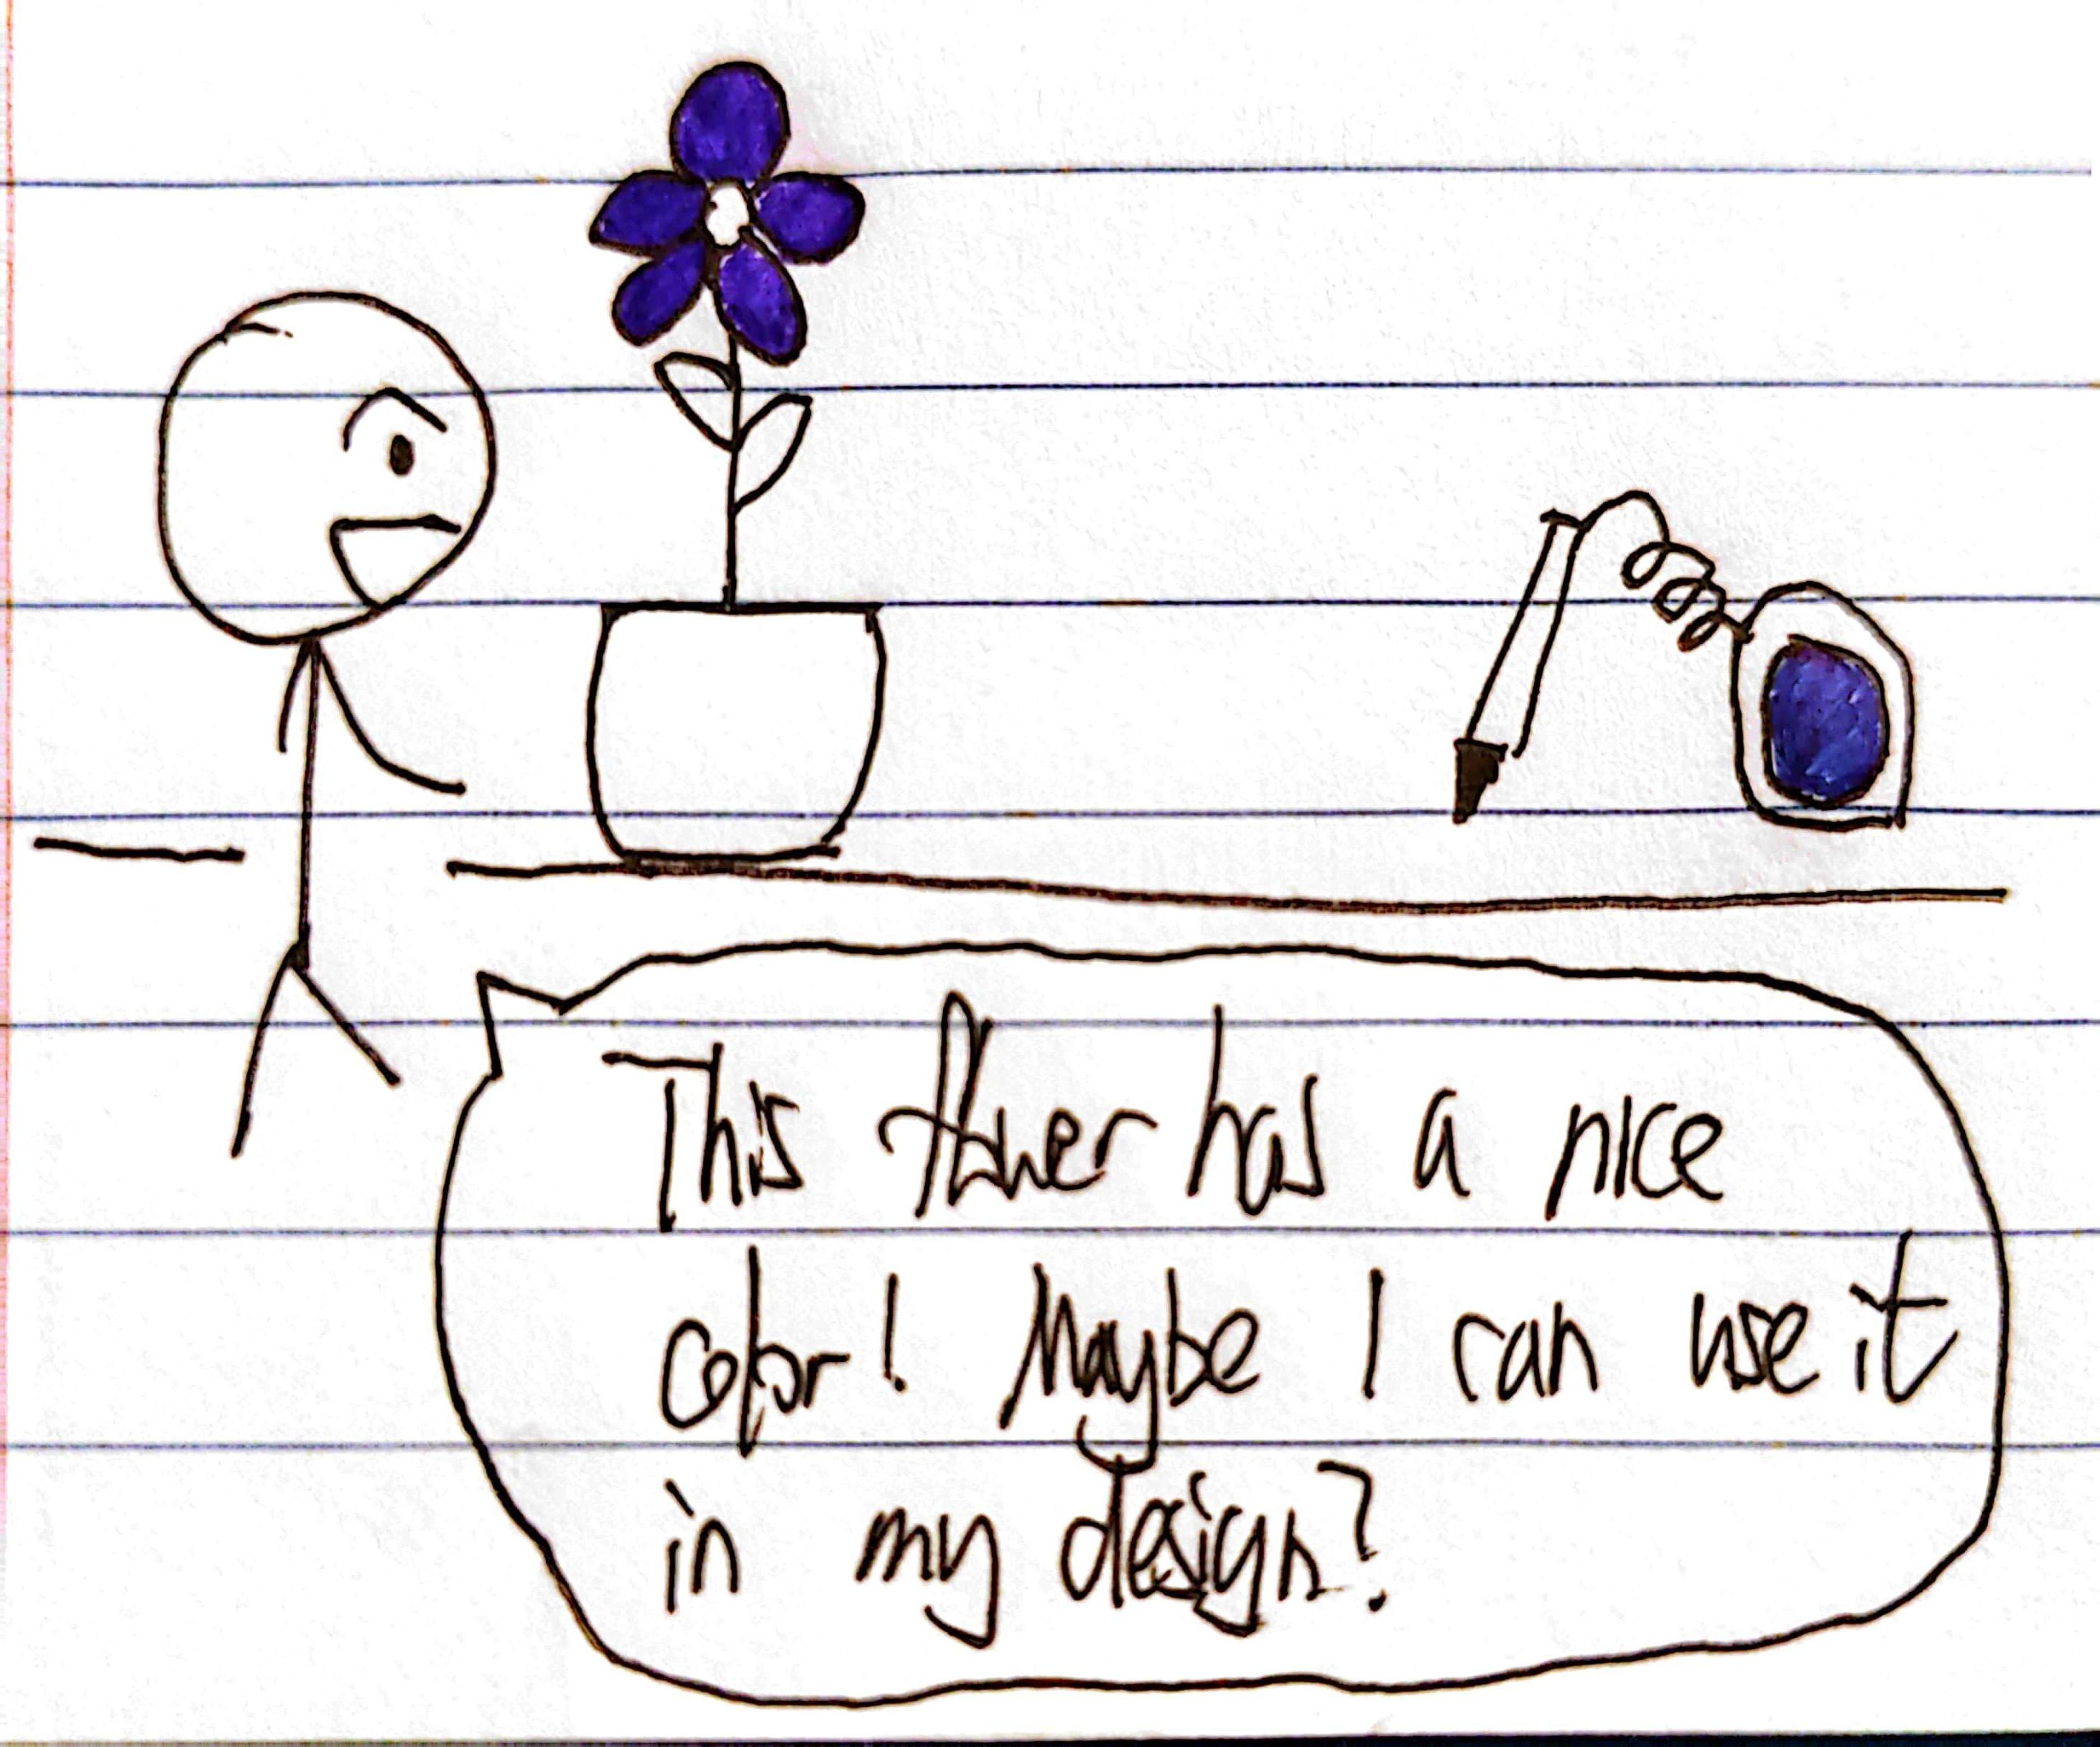 This flower has a nice
color! Maybe I can use it
in my design?